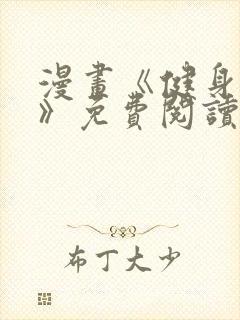 漫畫《健身
》免費閱讀
布丁大少